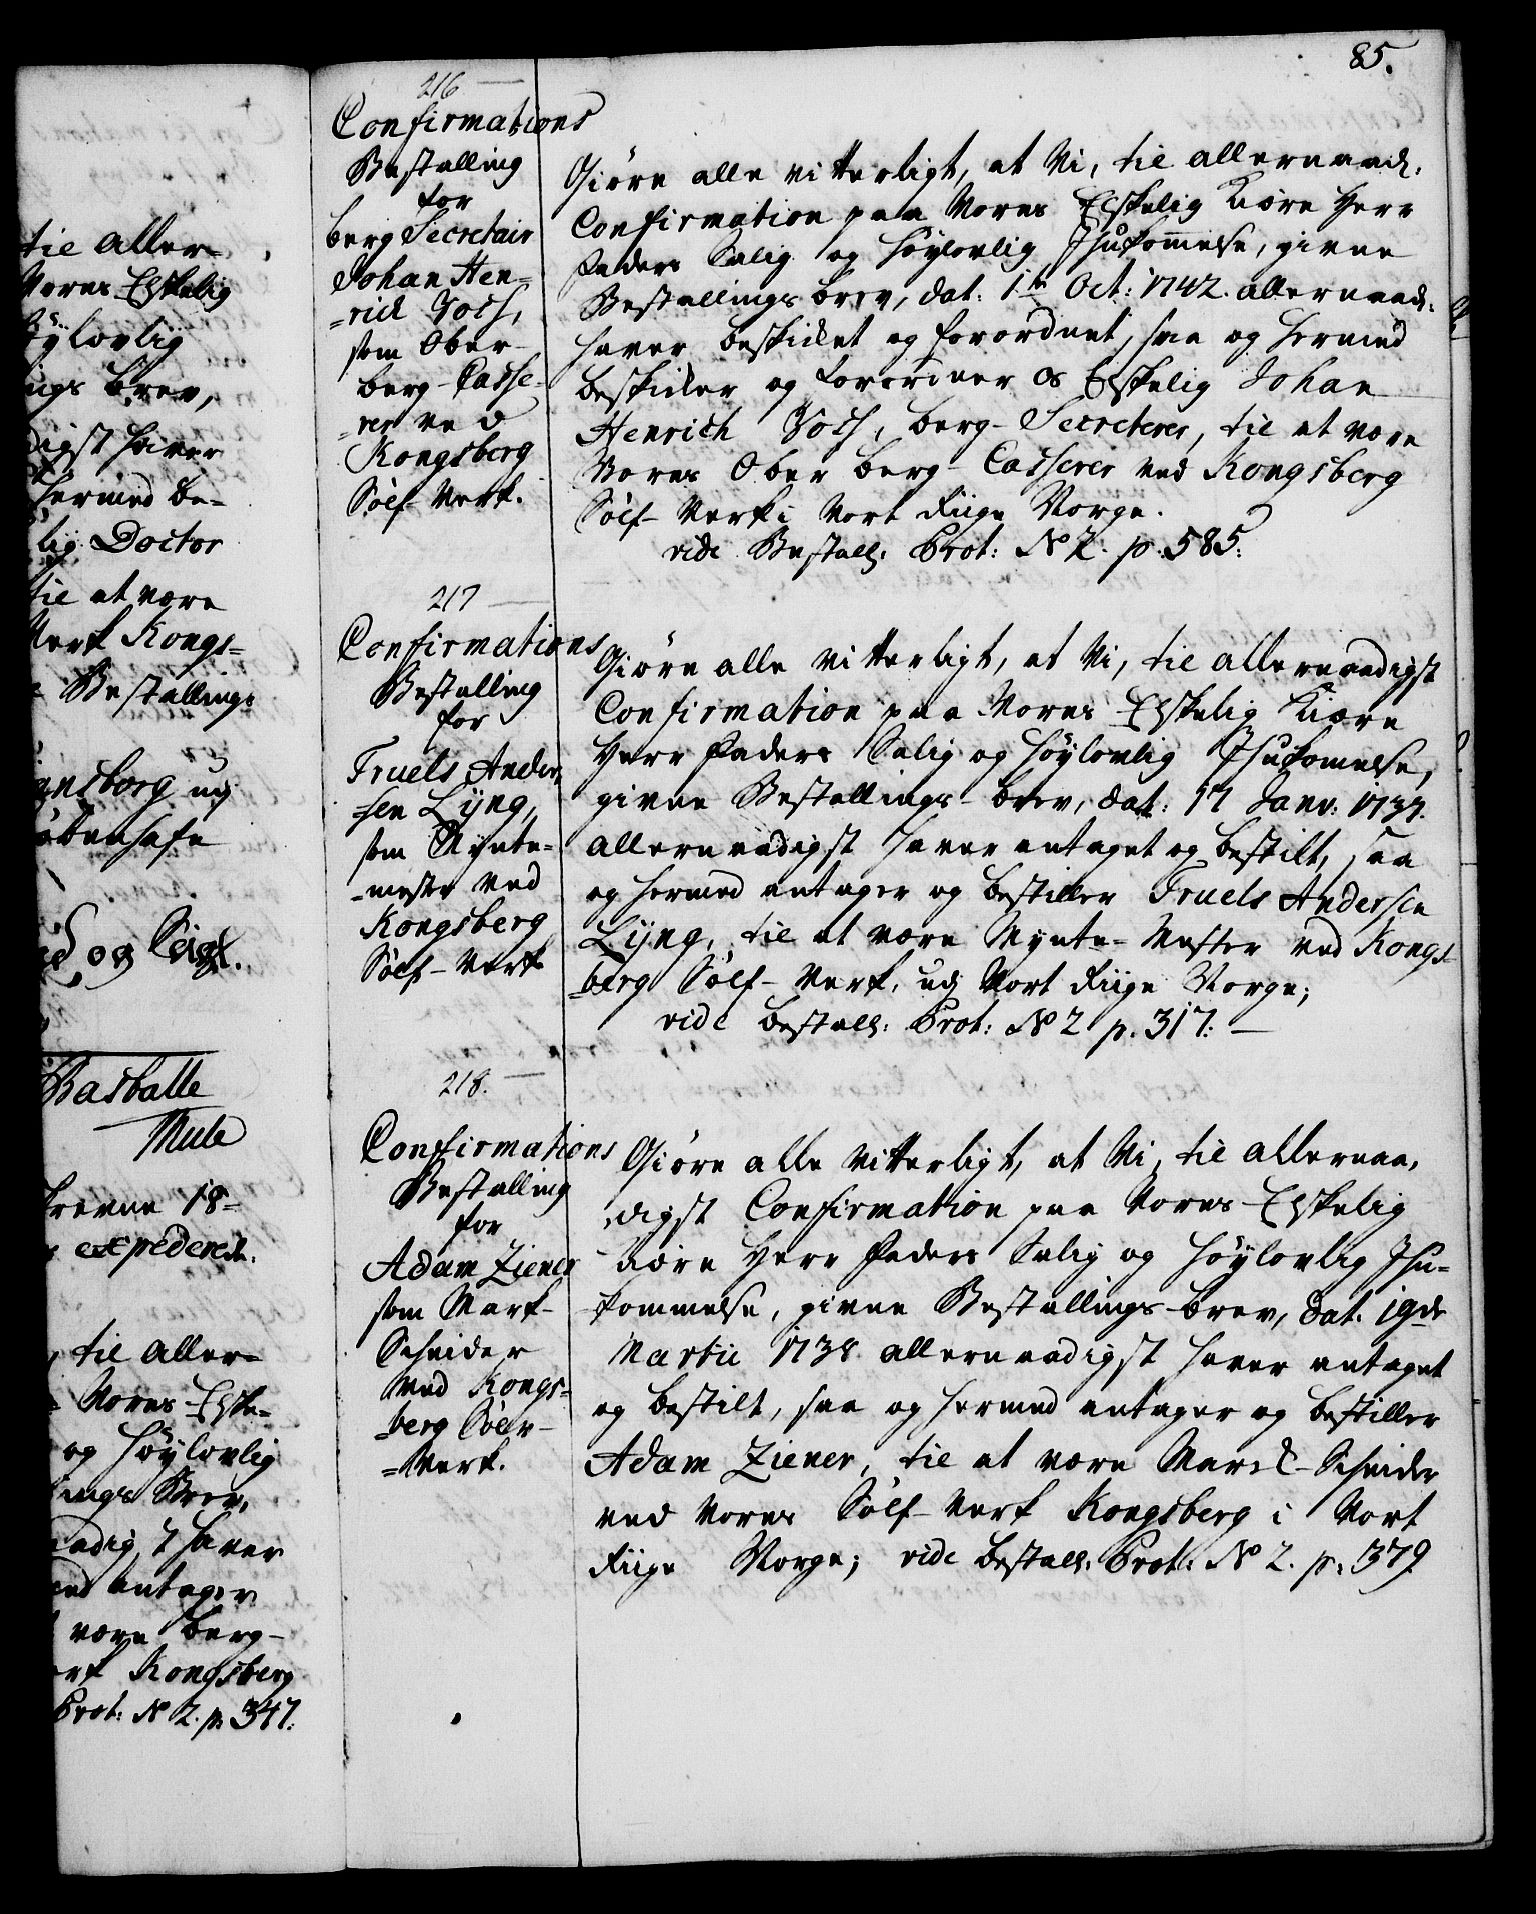 til Aller-
Vores Elskelig
höylovlig
ings Brev,
digst haver
hermed be-
lig Doctor
til at være
Verk Kongs-
Bestallings
ansborg udj
iöbenhafn
og Seigl.
Rasballe
Mule
18-
expederede.
, til Aller-
Vores Elske-
og Höylovlig
ings Brev,
naadigst haver
med antager
være Berg-
erk Kongsberg
Prot: No 2. p. 347.
85.
216
Confirmations
Bestalling
for
Berg Secretair
Johan Hen-
-rich Voth,
som Ober-
berg-Casse-
-rer ved
Kongsberg
Sölf-Verk.
Giöre alle vitterligt, at Vi, til allernaad.
Confirmation paa Vores Elskelig Kiöre Herr
Faders Salig og Höylovlig Ihukommelse, givne
Bestallings brev, dat: 1te Oct: 1742. allernaad:
haver beskidet og forordnet, saa og hermed
beskider og forordner os Elskelig Johan
Henrich Voth, berg-Secreterer, til at være
Vores Ober berg-Casserer ved Kongsberg
Sölf-Verk i Vort Riige Norge.
vide Bestall. Prot: No 2. p. 585.
217
Confirmations
Bestalling
for
Truels Ander-
sen Lÿng,
som Mynte-
-mester ved
Kongsberg
Sölf-Verk
Giöre alle vitterligt, at Vi, til allernaadigst
Confirmation paa Vores Elskelig Kiære
Herr Faders Salig og Höylovlig Ihukomelse,
givne Bestallings-brev, dat: 17 Janv: 1737.
allernaadigst haver antaget og bestilt, saa
og hermed antager og bestiller Truels Andersen
Lÿng, til at være Mynte-Mester ved Kongs-
-berg Sölf-Verk, udj Vort Riige Norge;
vide bestall: Prot: No 2 p. 317.
218.
Confirmations
Bestalling
for
Adam Ziener
som Mark-
Scheider
ved Kongs-
-berg Sölv-
-Verk.
Giöre alle vitterligt, at Vi, til allernaa,
digst Confirmation paa Vores Elskelig
kiære Herr Faders Salig og Höylovlig Ihu-
-kommelse, givne Bestallings-brev, dat. 19de
Martii 1738 allernaadigst haver antaget
og bestilt, saa og hermed antager og bestiller
Adam Ziener, til at være Marck-Scheider
ved Vores Sölf-Verk Kongsberg i Vort
Riige Norge; vide bestall: Prot: No 2. p. 379.